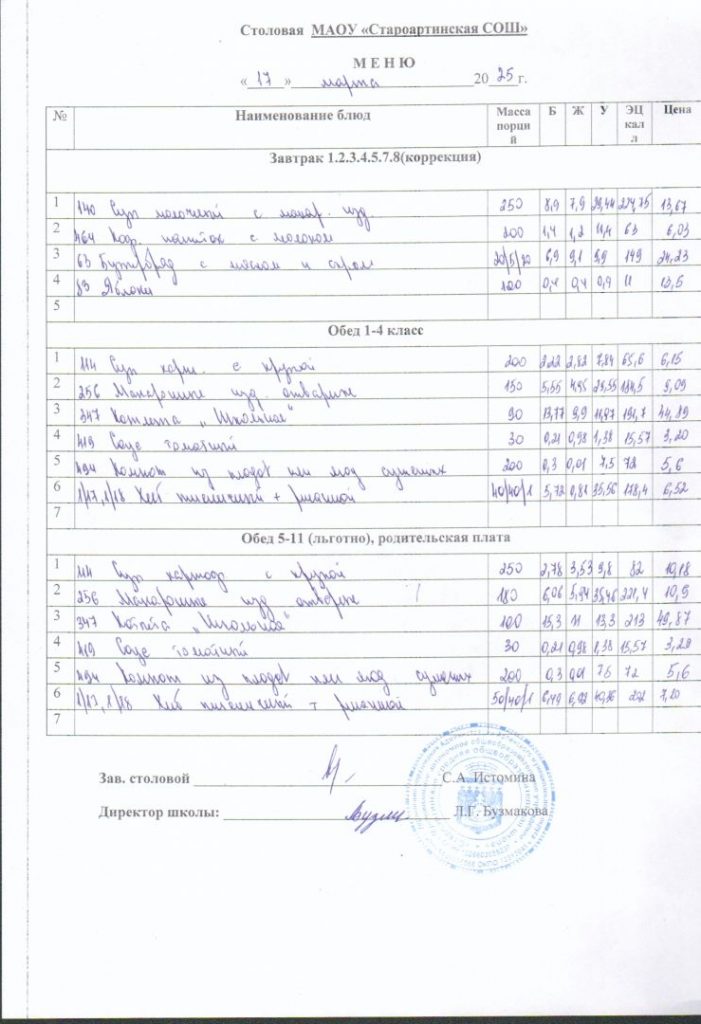 Столовая МАОУ «Староартинская СОШ»
М Е Н Ю
« 17 » марта 2025 г.
№ Наименование блюд Масса порций Б Ж У ЭЦ кал л Цена
Завтрак 1.2.3.4.5.7.8(коррекция)
1 140 Суп молочный с макар. изд 250 8,9 7,9 13,67
2 464 Коф. напиток с молоком 200 1,4 1,2 11,4 63 6,03
3 63 Бутерброд с маслом и сыром 20/5/20 6,9 9,1 9,9 149 24,23
4 83 Яблоки 100 0,4 0,4 0,9 11 13,5
5
Обед 1-4 класс
1 114 Суп карт. с крупой 200 2,22 2,82 7,84 65,6 6,15
2 256 Макаронные изд. отварные 150 5,55 4,95 29,55 184,5 9,09
3 347 Котлета „Школьная“ 90 13,77 9,9 11,97 191,7 44,89
4 419 Соус томатный 30 0,21 0,98 1,38 15,57 3,20
5 494 Компот из плодов или ягод сушеных 200 0,3 0,01 7,5 72 5,6
6 1/17,1/18 Хлеб пшеничный + ржаной 40/40/1 5,72 0,81 35,56 178,4 6,52
7
Обед 5-11 (льготно), родительская плата
1 114 Суп картоф с крупой 250 2,78 3,53 9,8 82 10,18
2 256 Макаронные изд отварные 180 6,06 5,94 35,46 221,4 10,9
3 347 Котлета „Школьная“ 100 15,3 11 13,3 213 49,87
4 419 Соус томатный 30 0,21 0,98 1,38 15,57 3,20
5 494 Компот из плодов или ягод сушеных 200 0,3 0,01 7,5 72 5,6
6 1/17, 1/18 Хлеб пшеничный + ржаной 50/40/1 6,49 7,20
7
Зав. столовой С.А. Истомина
Директор школы: Л.Г. Бузмакова